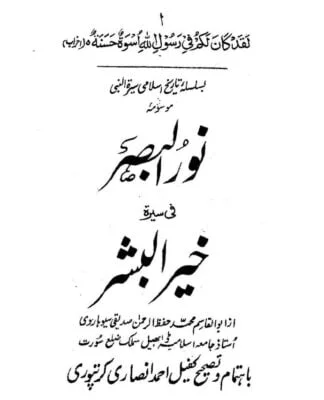 ۱
لَقَدْ كَانَ لَكُمْ فِیْ رَسُوْلِ اللہِ اُسْوَۃٌ حَسَنَۃٌ (احزاب)
بسلسلۂ تاریخ اسلامی سیرۃ النبی
موسومہ
نور البصر
فی سیرۃ
خیر البشر
از ابوالقاسم محمد حفظ الرحمن صدیقی سیوہاروی
استاذ جامعہ اسلامیہ ڈابھیل سملک ضلع سورت
باہتمام و تصحیح کفیل احمد انصاری کرتپوری